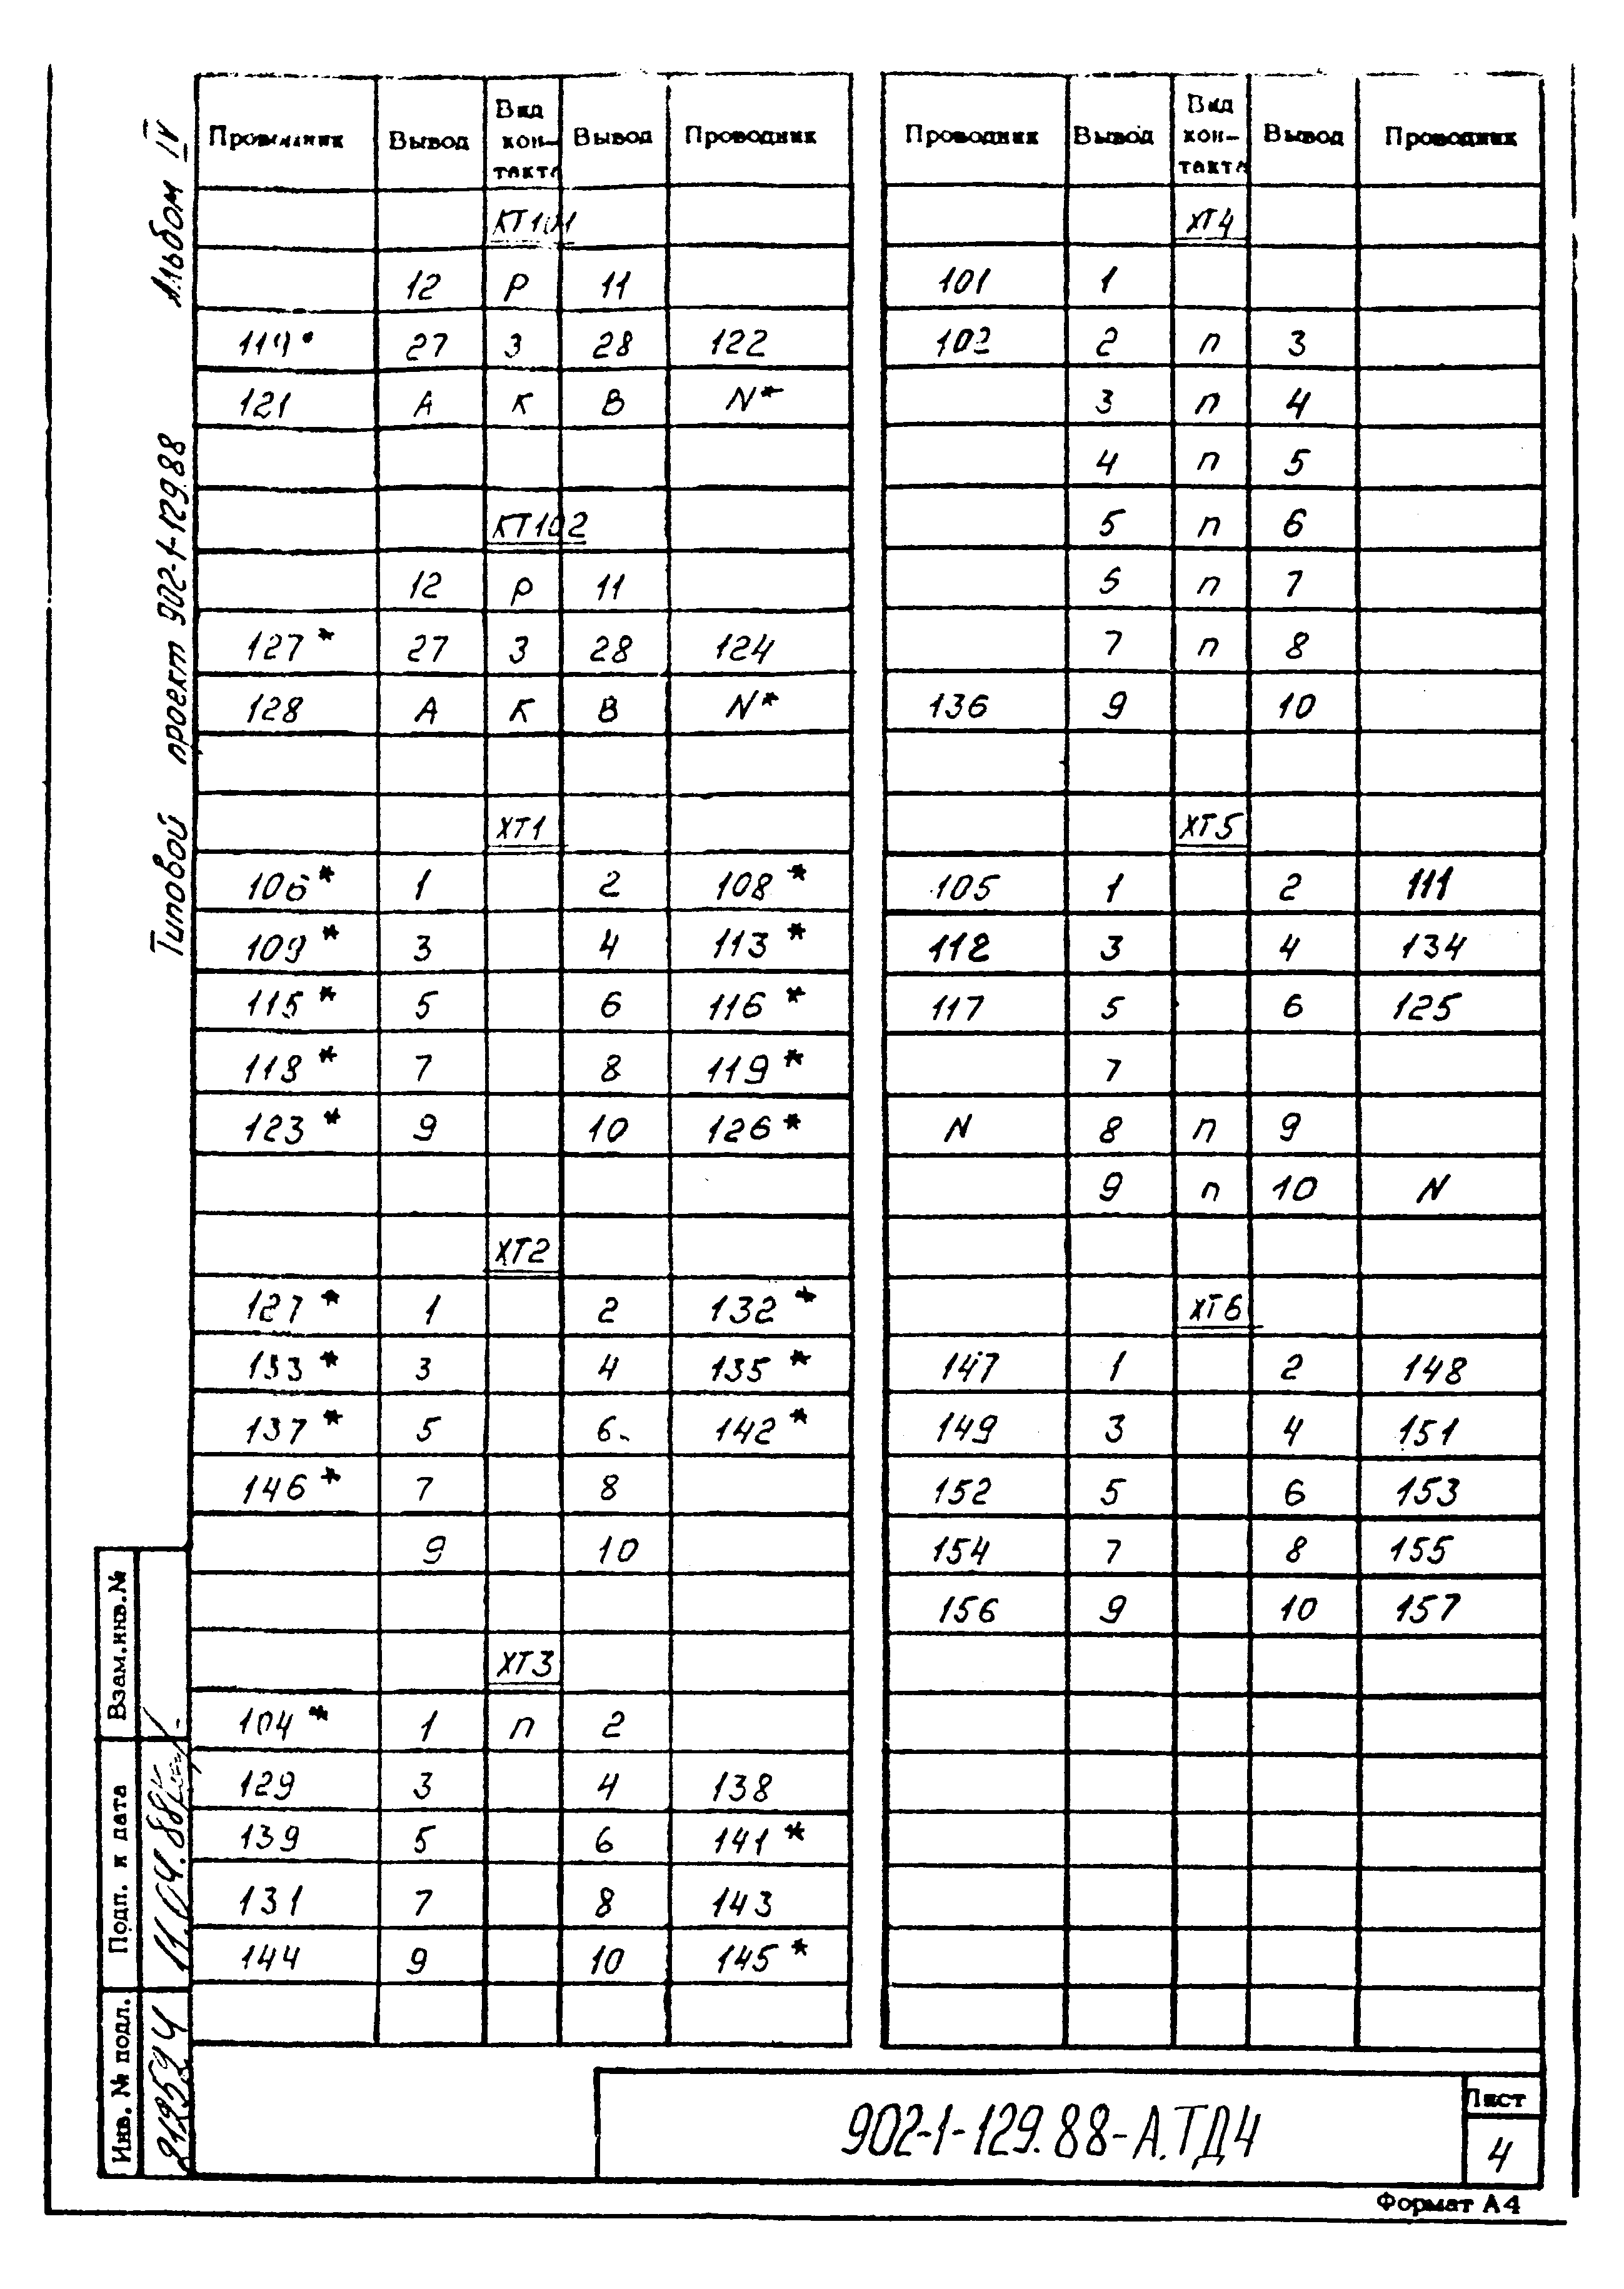 Альбом IV
Типовой проект 902-1-129.88
Проводник Вывод Вид кон-такта Вывод Проводник
КТ101
12 Р 11
119* 27 З 28 122
121 А К В N*
КТ102
12 Р 11
127* 27 З 28 124
128 А К В N*
ХТ1
106* 1 2 108*
109* 3 4 113*
115* 5 6 116*
118* 7 8 119*
123* 9 10 126*
ХТ2
127* 1 2 132*
133* 3 4 135*
137* 5 6 142*
146* 7 8
9 10
ХТ3
104* 1 п 2
129 3 4 138
139 5 6 141*
131 7 8 143
144 9 10 145*
Проводник Вывод Вид кон-такта Вывод Проводник
ХТ4
101 1
102 2 п 3
3 п 4
4 п 5
5 п 6
6 п 7
7 п 8
136 9 10
ХТ5
105 1 2 111
112 3 4 134
117 5 6 125
7
N 8 п 9
9 п 10 N
ХТ6
147 1 2 148
149 3 4 151
152 5 6 153
154 7 8 155
156 9 10 157
Взам.инв.№
Подп. и дата
11.04.88
Инв. № подл.
902-1-129.88-А.ТД4
Лист
4
Формат А4